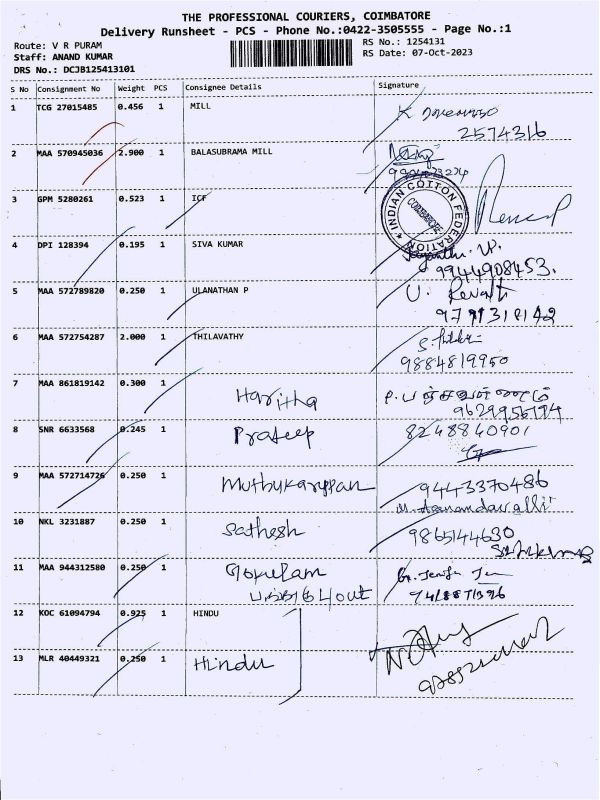 THE PROFESSIONAL COURIERS, COIMBATORE
Delivery Runsheet - PCS - Phone No.:0422-3505555 - Page No.:1
Route: V R PURAM
RS No.: 1254131
Staff: ANAND KUMAR
RS Date: 07-Oct-2023
DRS No.: DCJB125413101
S No Consignment No Weight PCS Consignee Details Signature
1 TCG 27015485 0.456 1 MILL
2574316
2 MAA 570945036 2.900 1 BALASUBRAMA MILL
3 GPM 5280261 0.523 1 ICF
INDIAN COTTON FEDERATION
COIMBATORE
4 DPI 128394 0.195 1 SIVA KUMAR
9944908453.
5 MAA 572789820 0.250 1 ULANATHAN P
U. Revathi
6 MAA 572754287 2.000 1 THILAVATHY
9884819950
7 MAA 861819142 0.300 1 Haritha
8 SNR 6633568 0.245 1 Prateep 8248840901
9 MAA 572714726 0.250 1 Muthukaruppan 9443370486
10 NKL 3231887 0.250 1 Sathesh 9865144630
11 MAA 944312580 0.250 1 Gokulam
12 KOC 61094794 0.925 1 HINDU
13 MLR 40449321 0.250 1 Hindu